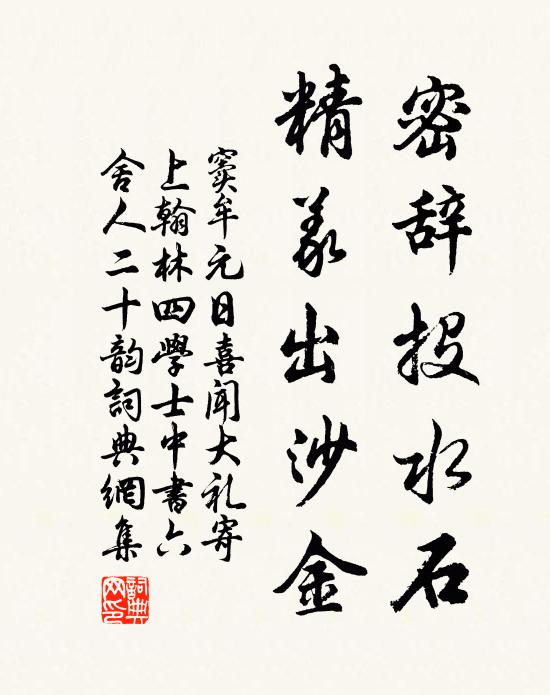 密辞投水石
精义出沙金
窦牟元日喜闻大礼寄
上翰林四學士中書六
舍人二十韵詞典網集
詞典网印